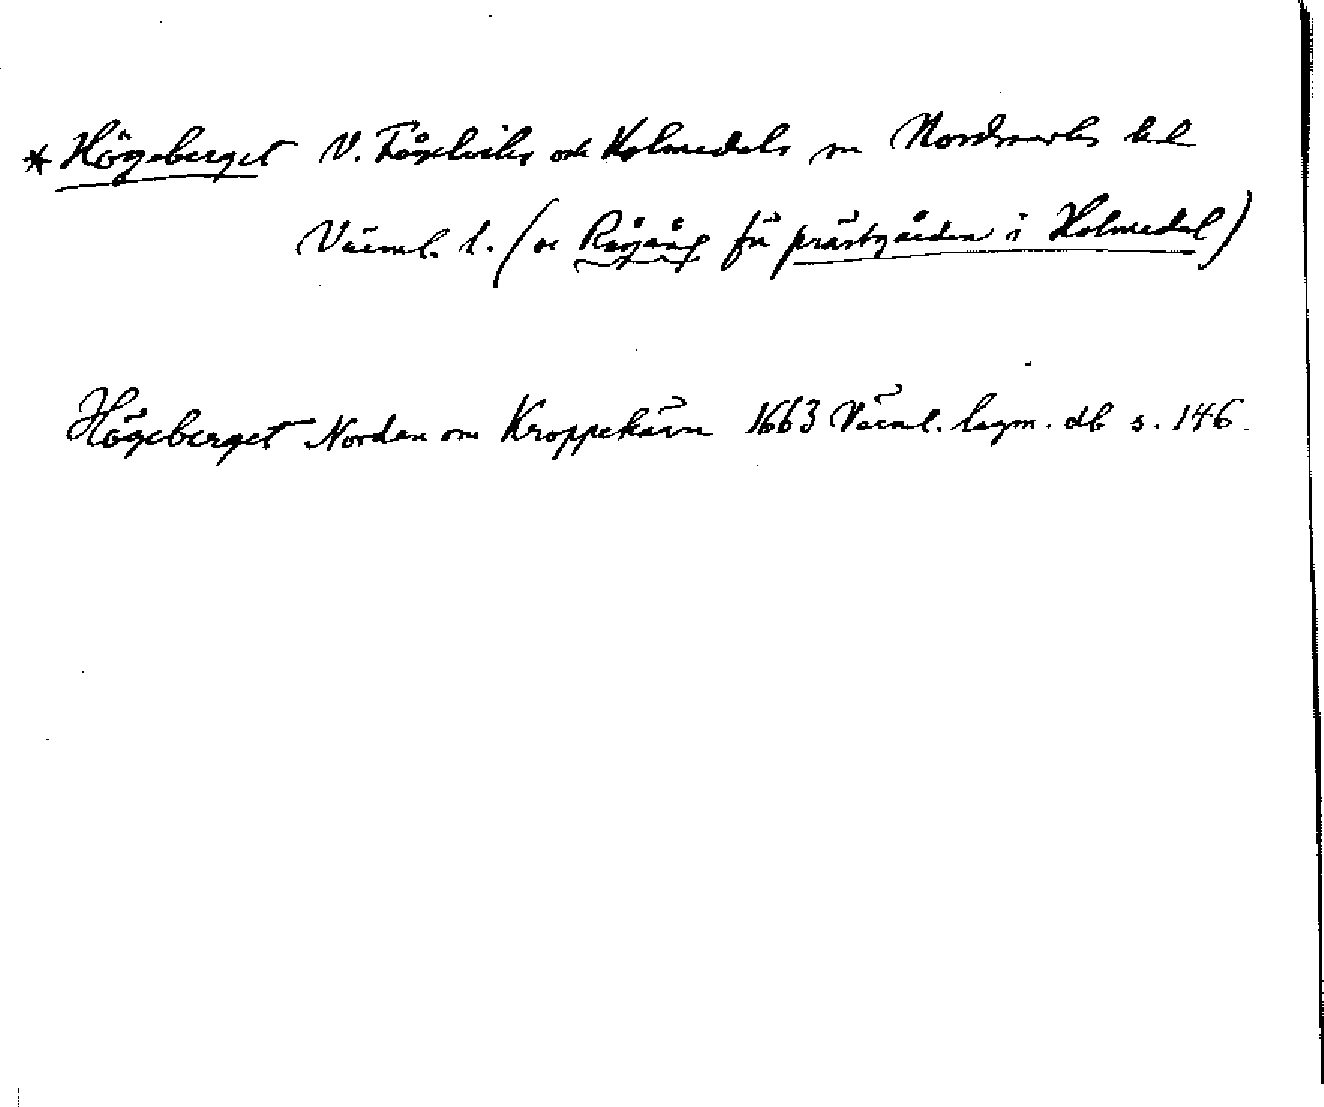 * Högeberget V. Fågelviks och Holmedals sn Nordmarks hd
Värml. l. (se Rågång för prästgården i Holmedal)
Högeberget Nordan om Kroppekärn 1663 Värml. lagm. db s. 146.